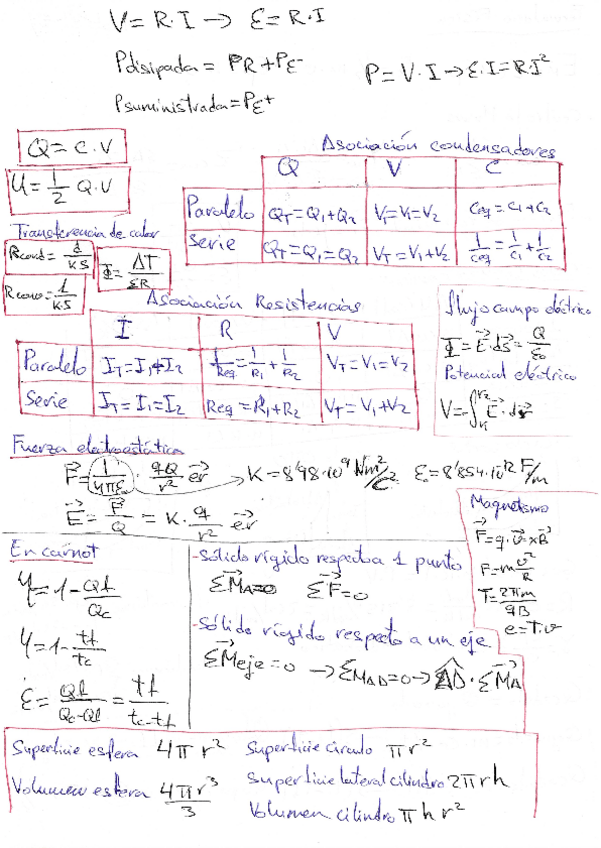 V = R·I → ε = R·I
Pdisipada = PR + Pε-
P = V·I → ε·I = R·I²
Psuministrada = Pε+
Q = C·V
U = 1/2 Q·V
Asociación condensadores
Q V C
Paralelo QT = Q1 + Q2 VT = V1 = V2 Ceq = C1 + C2
Serie QT = Q1 = Q2 VT = V1 + V2 1/Ceq = 1/C1 + 1/C2
Transferencia de calor
Rcond = d/K·S
Φ = ΔT/ΣR
Rconv = 1/K·S
Asociación Resistencias
I R V
Paralelo IT = I1 + I2 1/Req = 1/R1 + 1/R2 VT = V1 = V2
Serie IT = I1 = I2 Req = R1 + R2 VT = V1 + V2
flujo campo eléctrico
Φ = E⃗·ds⃗ = Q/ε0
Potencial eléctrico
V = -∫ E⃗·dr⃗
Fuerza electroestática
F⃗ = 1/4πε · qQ/r² e⃗r → K = 8'98·10⁹ Nm²/C² ε = 8'854·10⁻¹² F/m
E⃗ = F⃗/Q = K · q/r² e⃗r
Magnetismo
F⃗ = q·v⃗ x B⃗
F = m v²/R
T = 2πm/qB
e = T·v
En carnot
η = 1 - Qf/Qc
η = 1 - tf/tc
ε = Qf/Qc-Qf = tf/tc-tf
-sólido rígido respecto a 1 punto
ΣM⃗A = 0 ΣF⃗ = 0
-sólido rígido respecto a un eje
ΣM⃗eje = 0 → ΣMAD = 0 → AD · ΣM⃗A
Superficie esfera 4πr²
Superficie círculo πr²
Volumen esfera 4πr³/3
superficie lateral cilindro 2πrh
Volumen cilindro πhr²